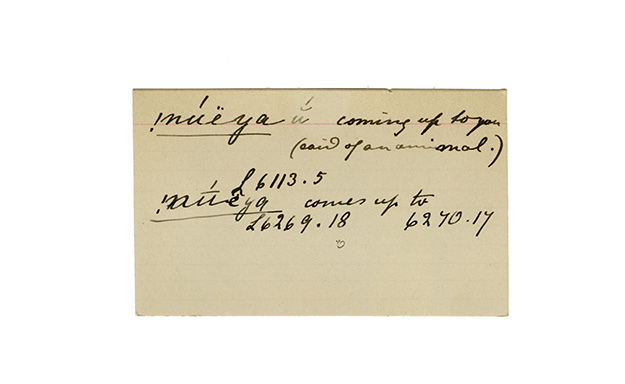 !núëya ŭ́ coming up to you
(said of an animal.)
L6113.5
!núëya comes up to
L6269.18 6270.17